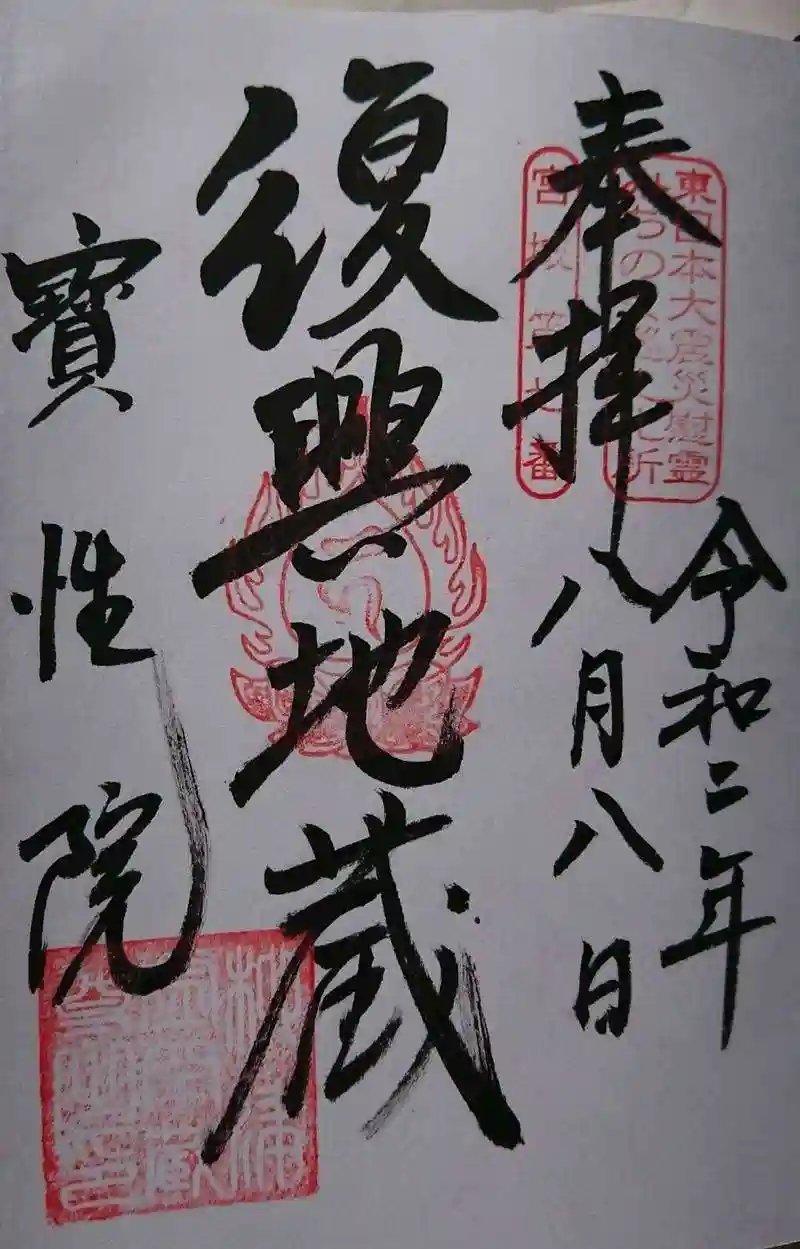 奉拝
東日本大震災慰霊
宮城第七番
令和二年
八月八日
復興地蔵
寶性院